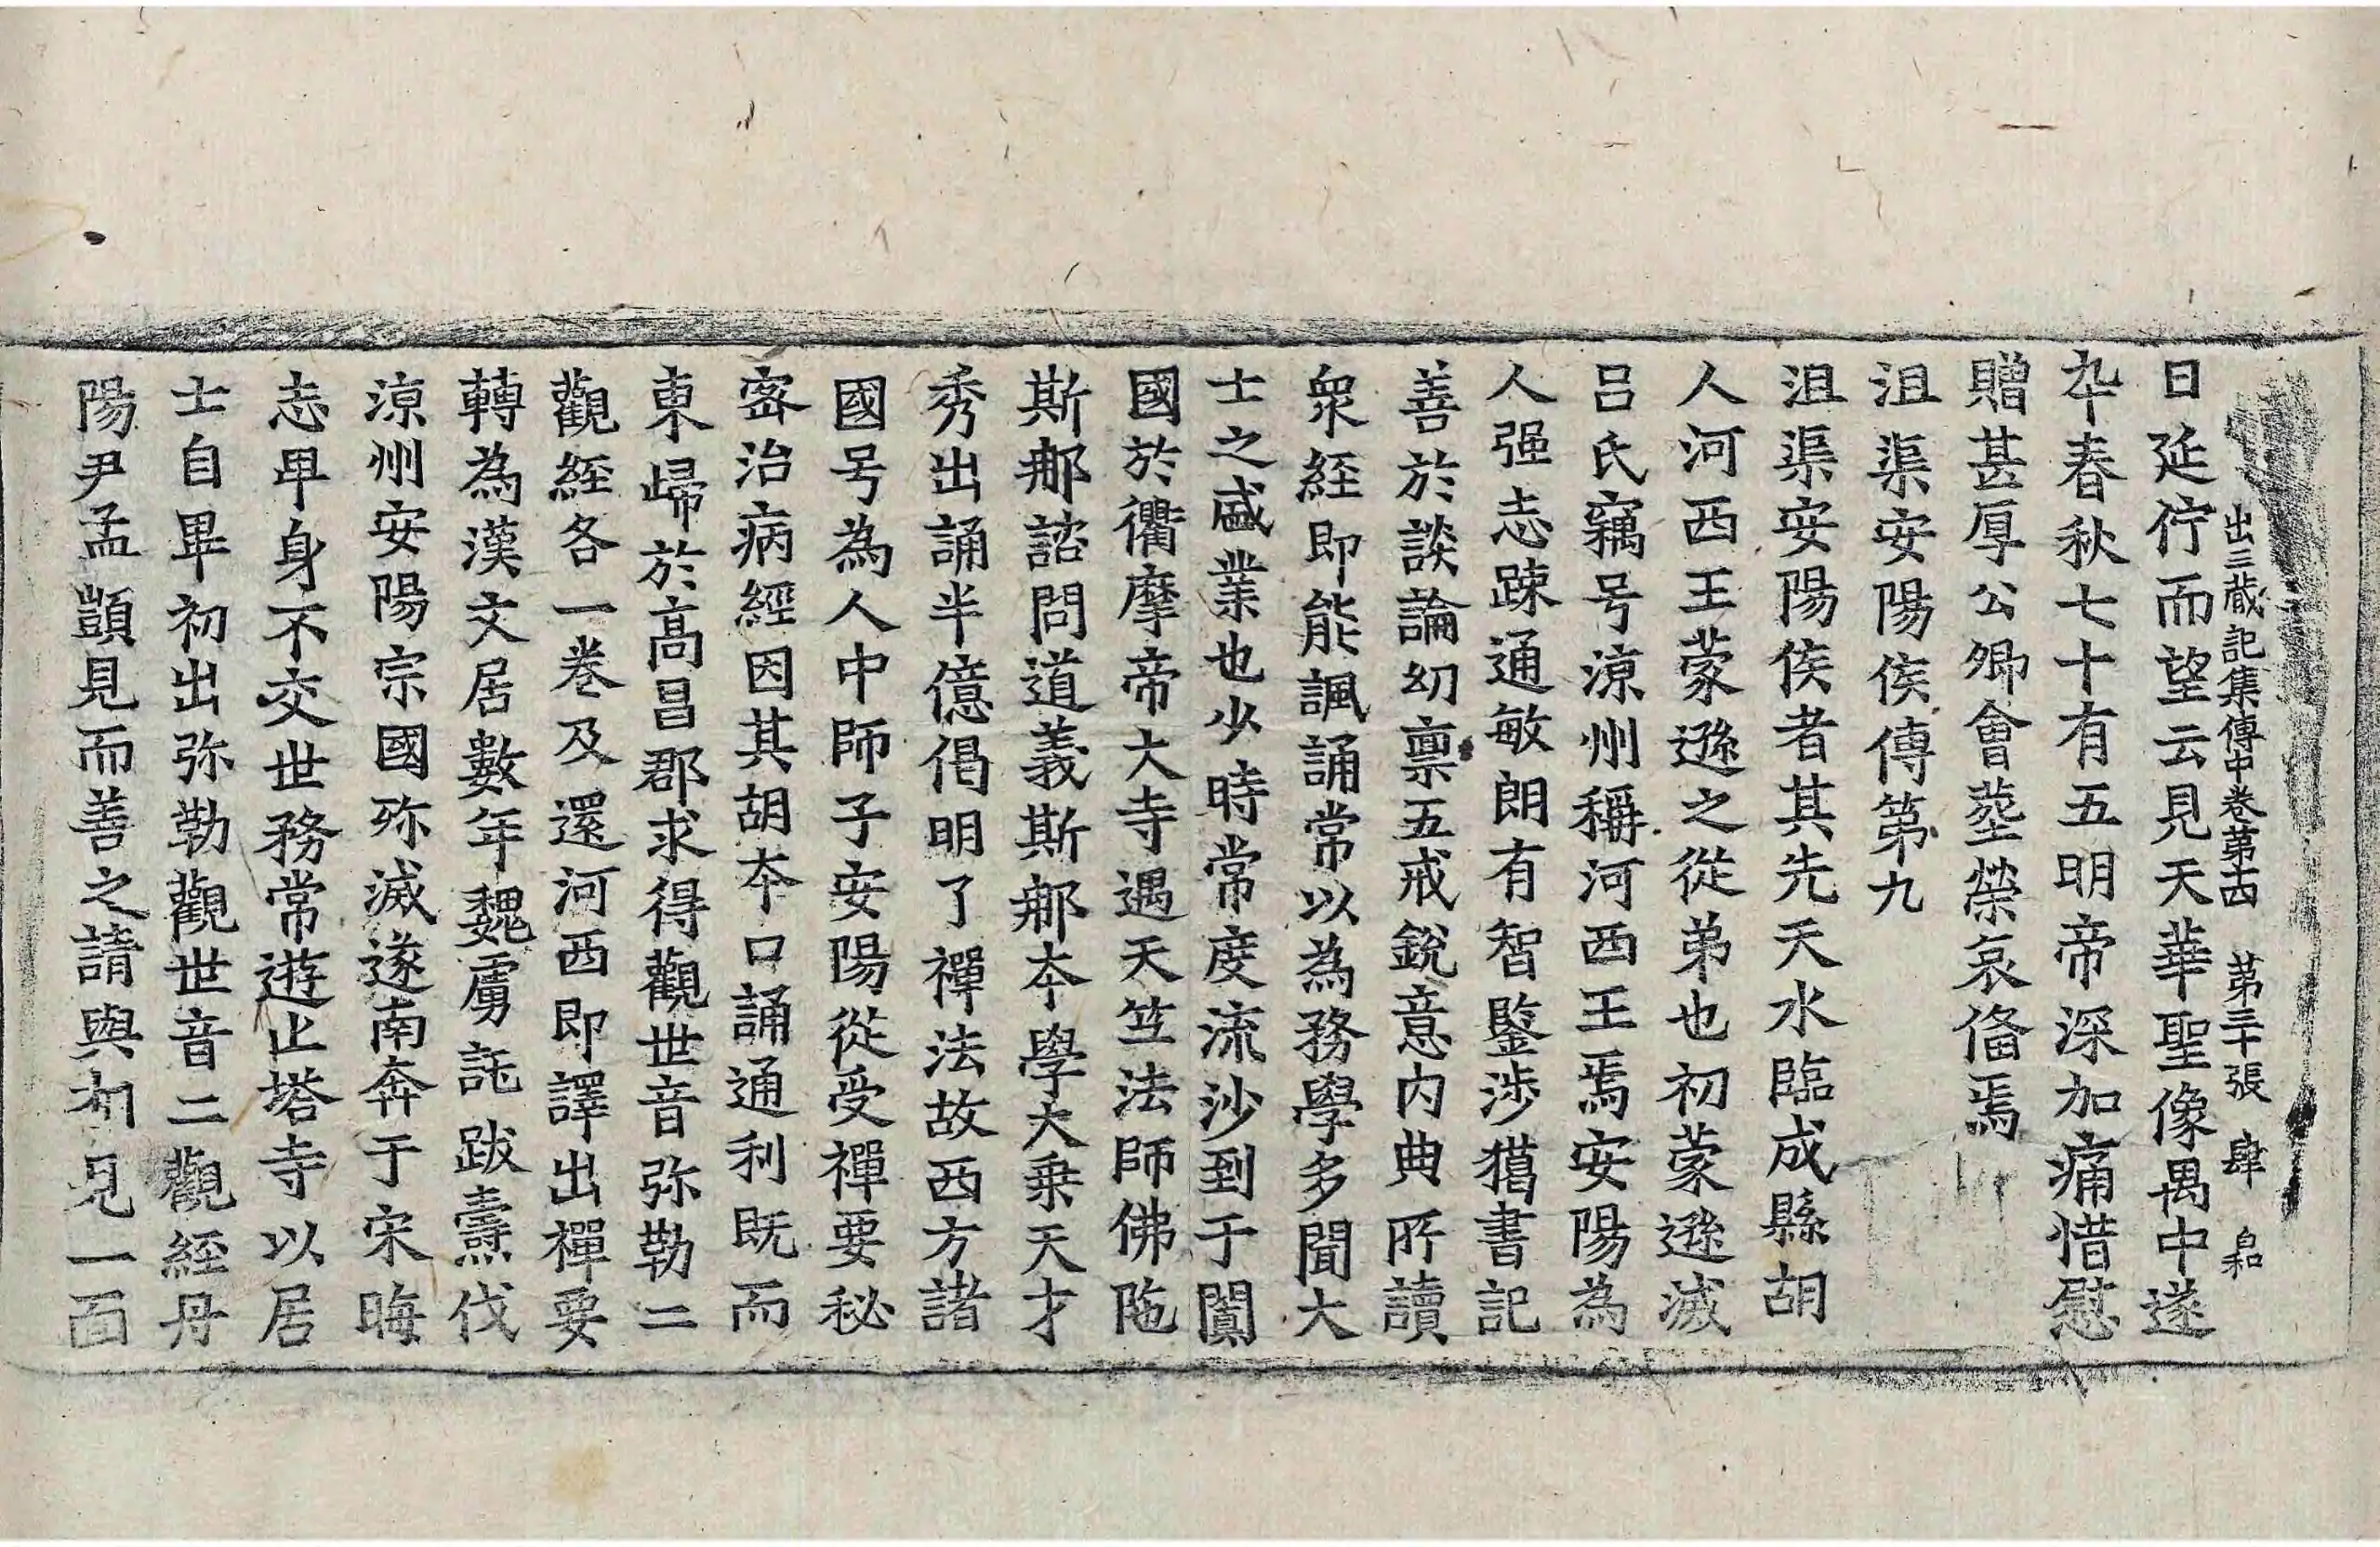 出三藏記集傳中卷第十四　第三十張　肆　自和
日延佇而望云見天華聖像禺中遂
卒春秋七十有五明帝深加痛惜慰
贈甚厚公卿會葬榮哀俻焉
沮渠安陽侯傳第九
沮渠安陽侯者其先天水臨成縣胡
人河西王蒙遜之從弟也初蒙遜滅
呂氏竊号涼州稱河西王焉安陽為
人强志踈通敏朗有智鑒涉獵書記
善於談論幼禀五戒銳意内典所讀
衆経即能諷誦常以為務學多聞大
士之盛業也少時常度流沙到于闐
國於衢摩帝大寺遇天竺法師佛陁
斯那諮問道義斯斯那本學大乗天才
秀出誦半億偈明了禪法故西方諸
國号為人中師子安陽從受禪要秘
密治病經因其胡本口誦通利既而
東歸於髙昌郡求得觀世音弥勒二
觀経各一卷及還河西即譯出禪要
轉為漢文居數年魏虜託跋燾伐
涼州安陽宗國殄滅遂南奔于宋晦
志卑身不交世務常遊止塔寺以居
士自畢初出弥勒觀世音二觀経丹
陽尹孟顗見而善之請與相見一面